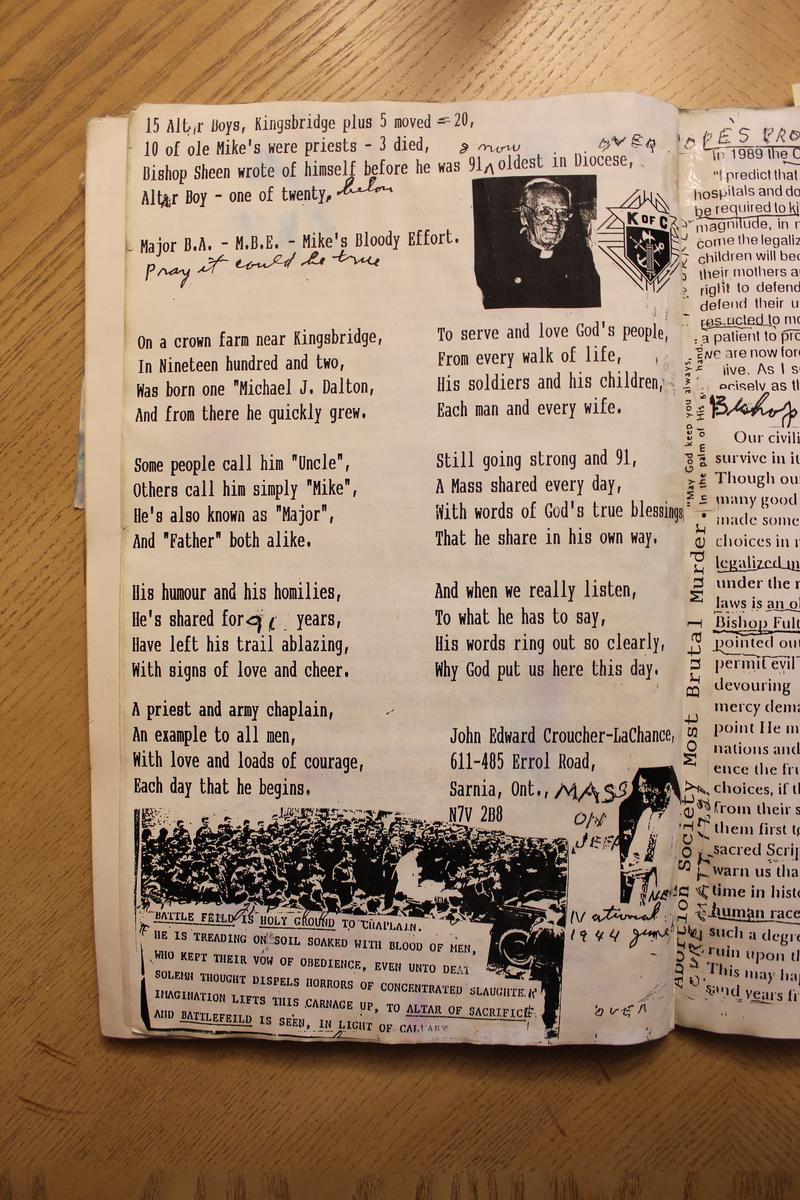 15 Altar Boys, Kingsbridge plus 5 moved = 20,
10 of ole Mike's were priests - 3 died,
& now
OVER
Bishop Sheen wrote of himself before he was 91 oldest in Diocese,
Altar Boy - one of twenty, below
Major B.A. - M.B.E. - Mike's Bloody Effort.
Pray it could be true
K OF C
On a crown farm near Kingsbridge,
In Nineteen hundred and two,
Was born one "Michael J. Dalton,
And from there he quickly grew.
Some people call him "Uncle",
Others call him simply "Mike",
He's also known as "Major",
And "Father" both alike.
His humour and his homilies,
He's shared for 91 years,
Have left his trail ablazing,
With signs of love and cheer.
A priest and army chaplain,
An example to all men,
With love and loads of courage,
Each day that he begins.
To serve and love God's people,
From every walk of life,
His soldiers and his children,
Each man and every wife.
Still going strong and 91,
A Mass shared every day,
With words of God's true blessings
That he share in his own way.
And when we really listen,
To what he has to say,
His words ring out so clearly,
Why God put us here this day.
John Edward Croucher-LaChance,
611-485 Errol Road,
Sarnia, Ont.,
N7V 2B8
MASS
ON
JEEP
1944 June
OVER
BATTLE FEILD IS HOLY GROUND TO CHAPLAIN.
HE IS TREADING ON SOIL SOAKED WITH BLOOD OF MEN,
WHO KEPT THEIR VOW OF OBEDIENCE, EVEN UNTO DEAT
SOLEMN THOUGHT DISPELS HORRORS OF CONCENTRATED SLAUGHTER
IMAGINATION LIFTS THIS CARNAGE UP, TO ALTAR OF SACRIFICE
AND BATTLEFEILD IS SEEN, IN LIGHT OF CALVARY
"May God keep you always,
in the palm of His hand."
Abortion Society Most Brutal Murder
OPE'S PRO
In 1989 the C
"I predict that
hospitals and do
be required to ki
magnitude, in r
come the legaliz
children will bec
their mothers a
right to defend
defend their u
res ucted to mo
a patient to pro
we are now for
live. As I s
ecisely as th
Bishop
Our civili
survive in it
Though ou
many good
made some
choices in r
legalized m
under the r
laws is an ol
Bishop Fult
pointed out
permit evil
devouring
mercy dema
point He m
nations and
ence the fru
choices, if t
from their s
them first to
sacred Scrip
warn us tha
time in histo
human race
such a degre
ruin upon th
This may hap
sand years fr